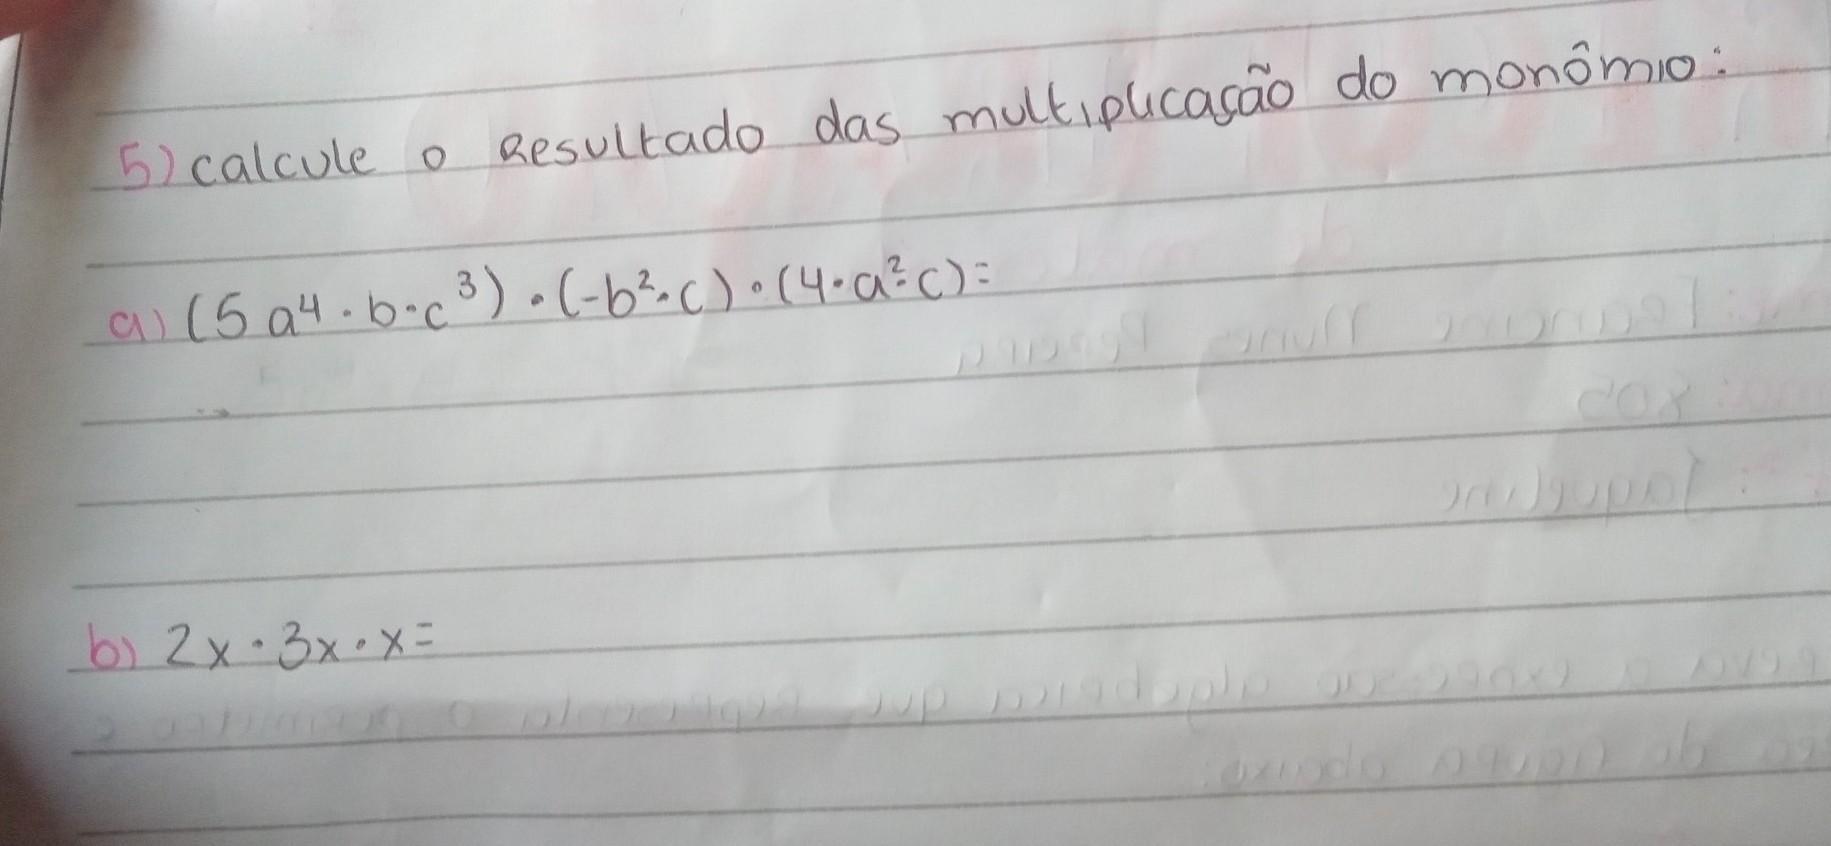 5) calcule o Resultado das multiplicação do monômio:
a) (5a⁴·b·c³)·(-b²·c)·(4·a²·c)=
b) 2x·3x·x=